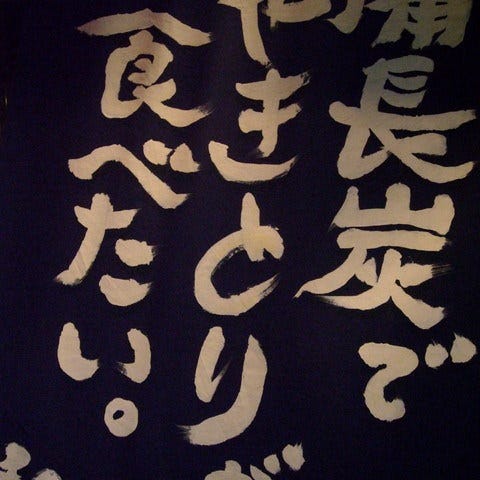 備長炭で
やきとりが
食べたい。